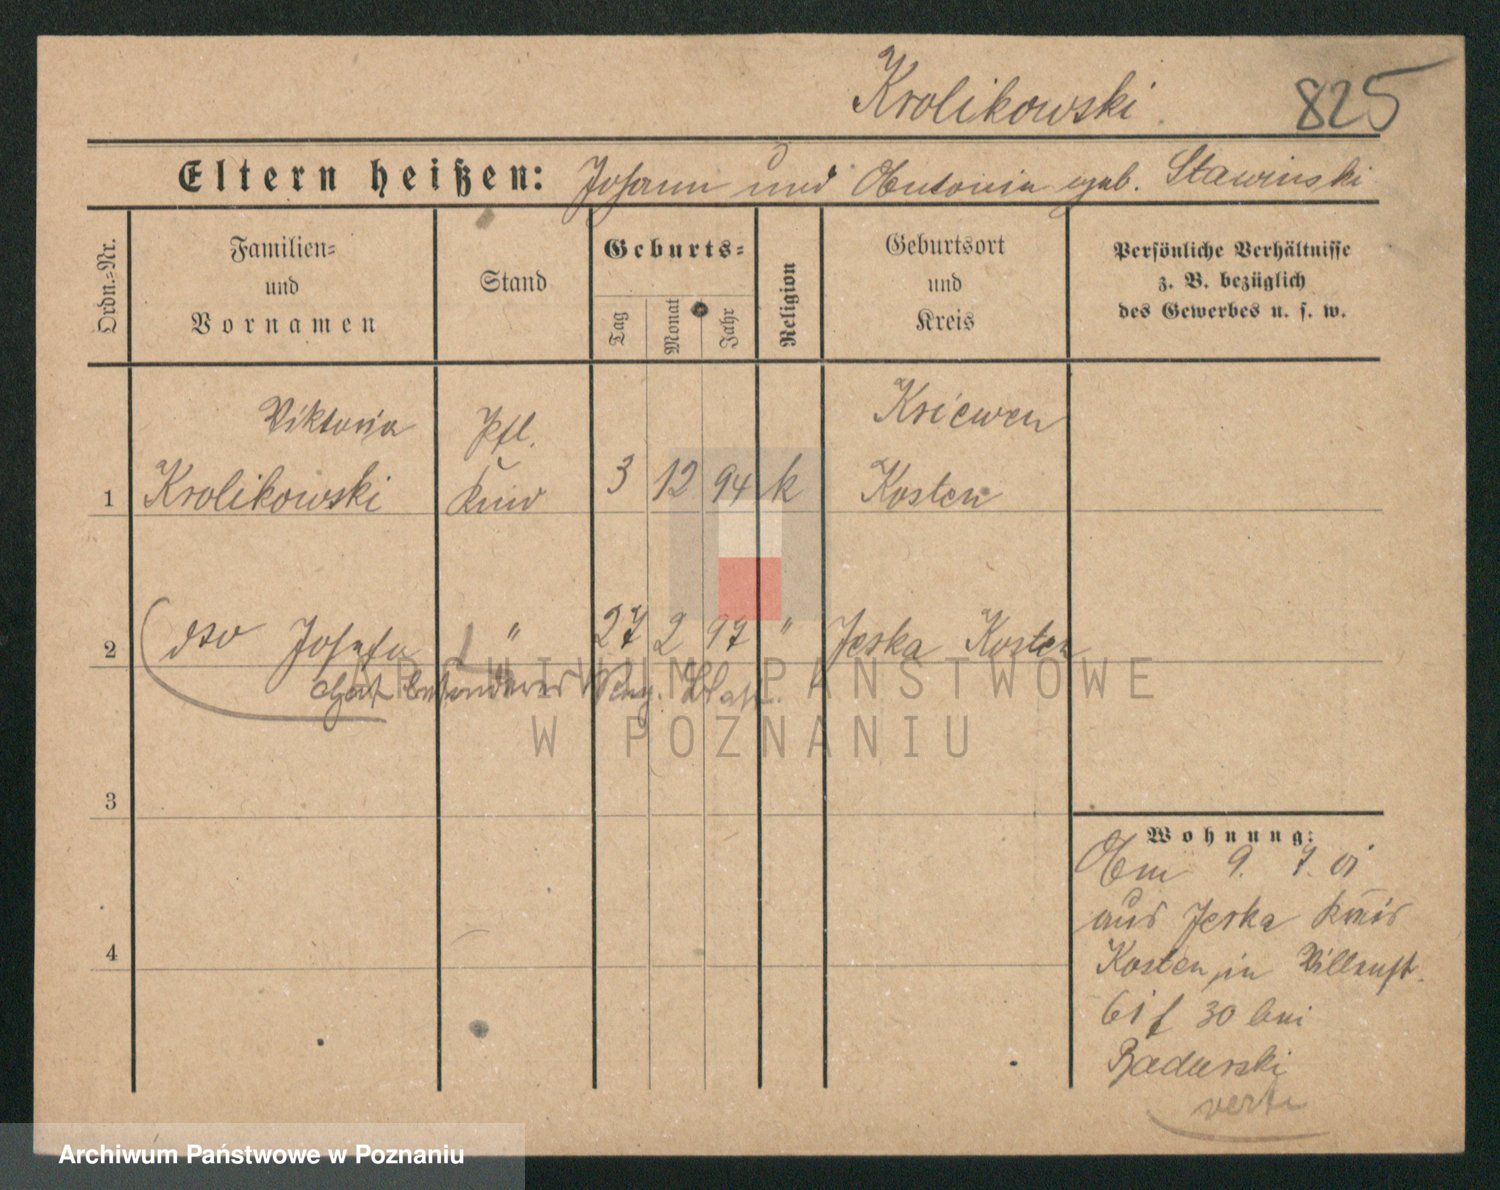 Krolikowski 825
Eltern heißen: Johann und Antonia geb. Stawinski
Ordn.=Nr.
Familien=
und
Vornamen
Stand
Geburts=
Tag
Monat
Jahr
Religion
Geburtsort
und
Kreis
Persönliche Verhältnisse
z. B. bezüglich
des Gewerbes u. s. w.
Viktoria Kriewen
1 Krolikowski 3 12 94 k Kosten
2 dso Josefa " 27 2 97 " Jeska Kosten
hat besonderes
3
4
Wohnung:
Am 9. 7. 01
aus Jeska Kreis
Kosten, in
30 bei
Badurski
verte
ARCHIWUM PAŃSTWOWE
W POZNANIU
Archiwum Państwowe w Poznaniu